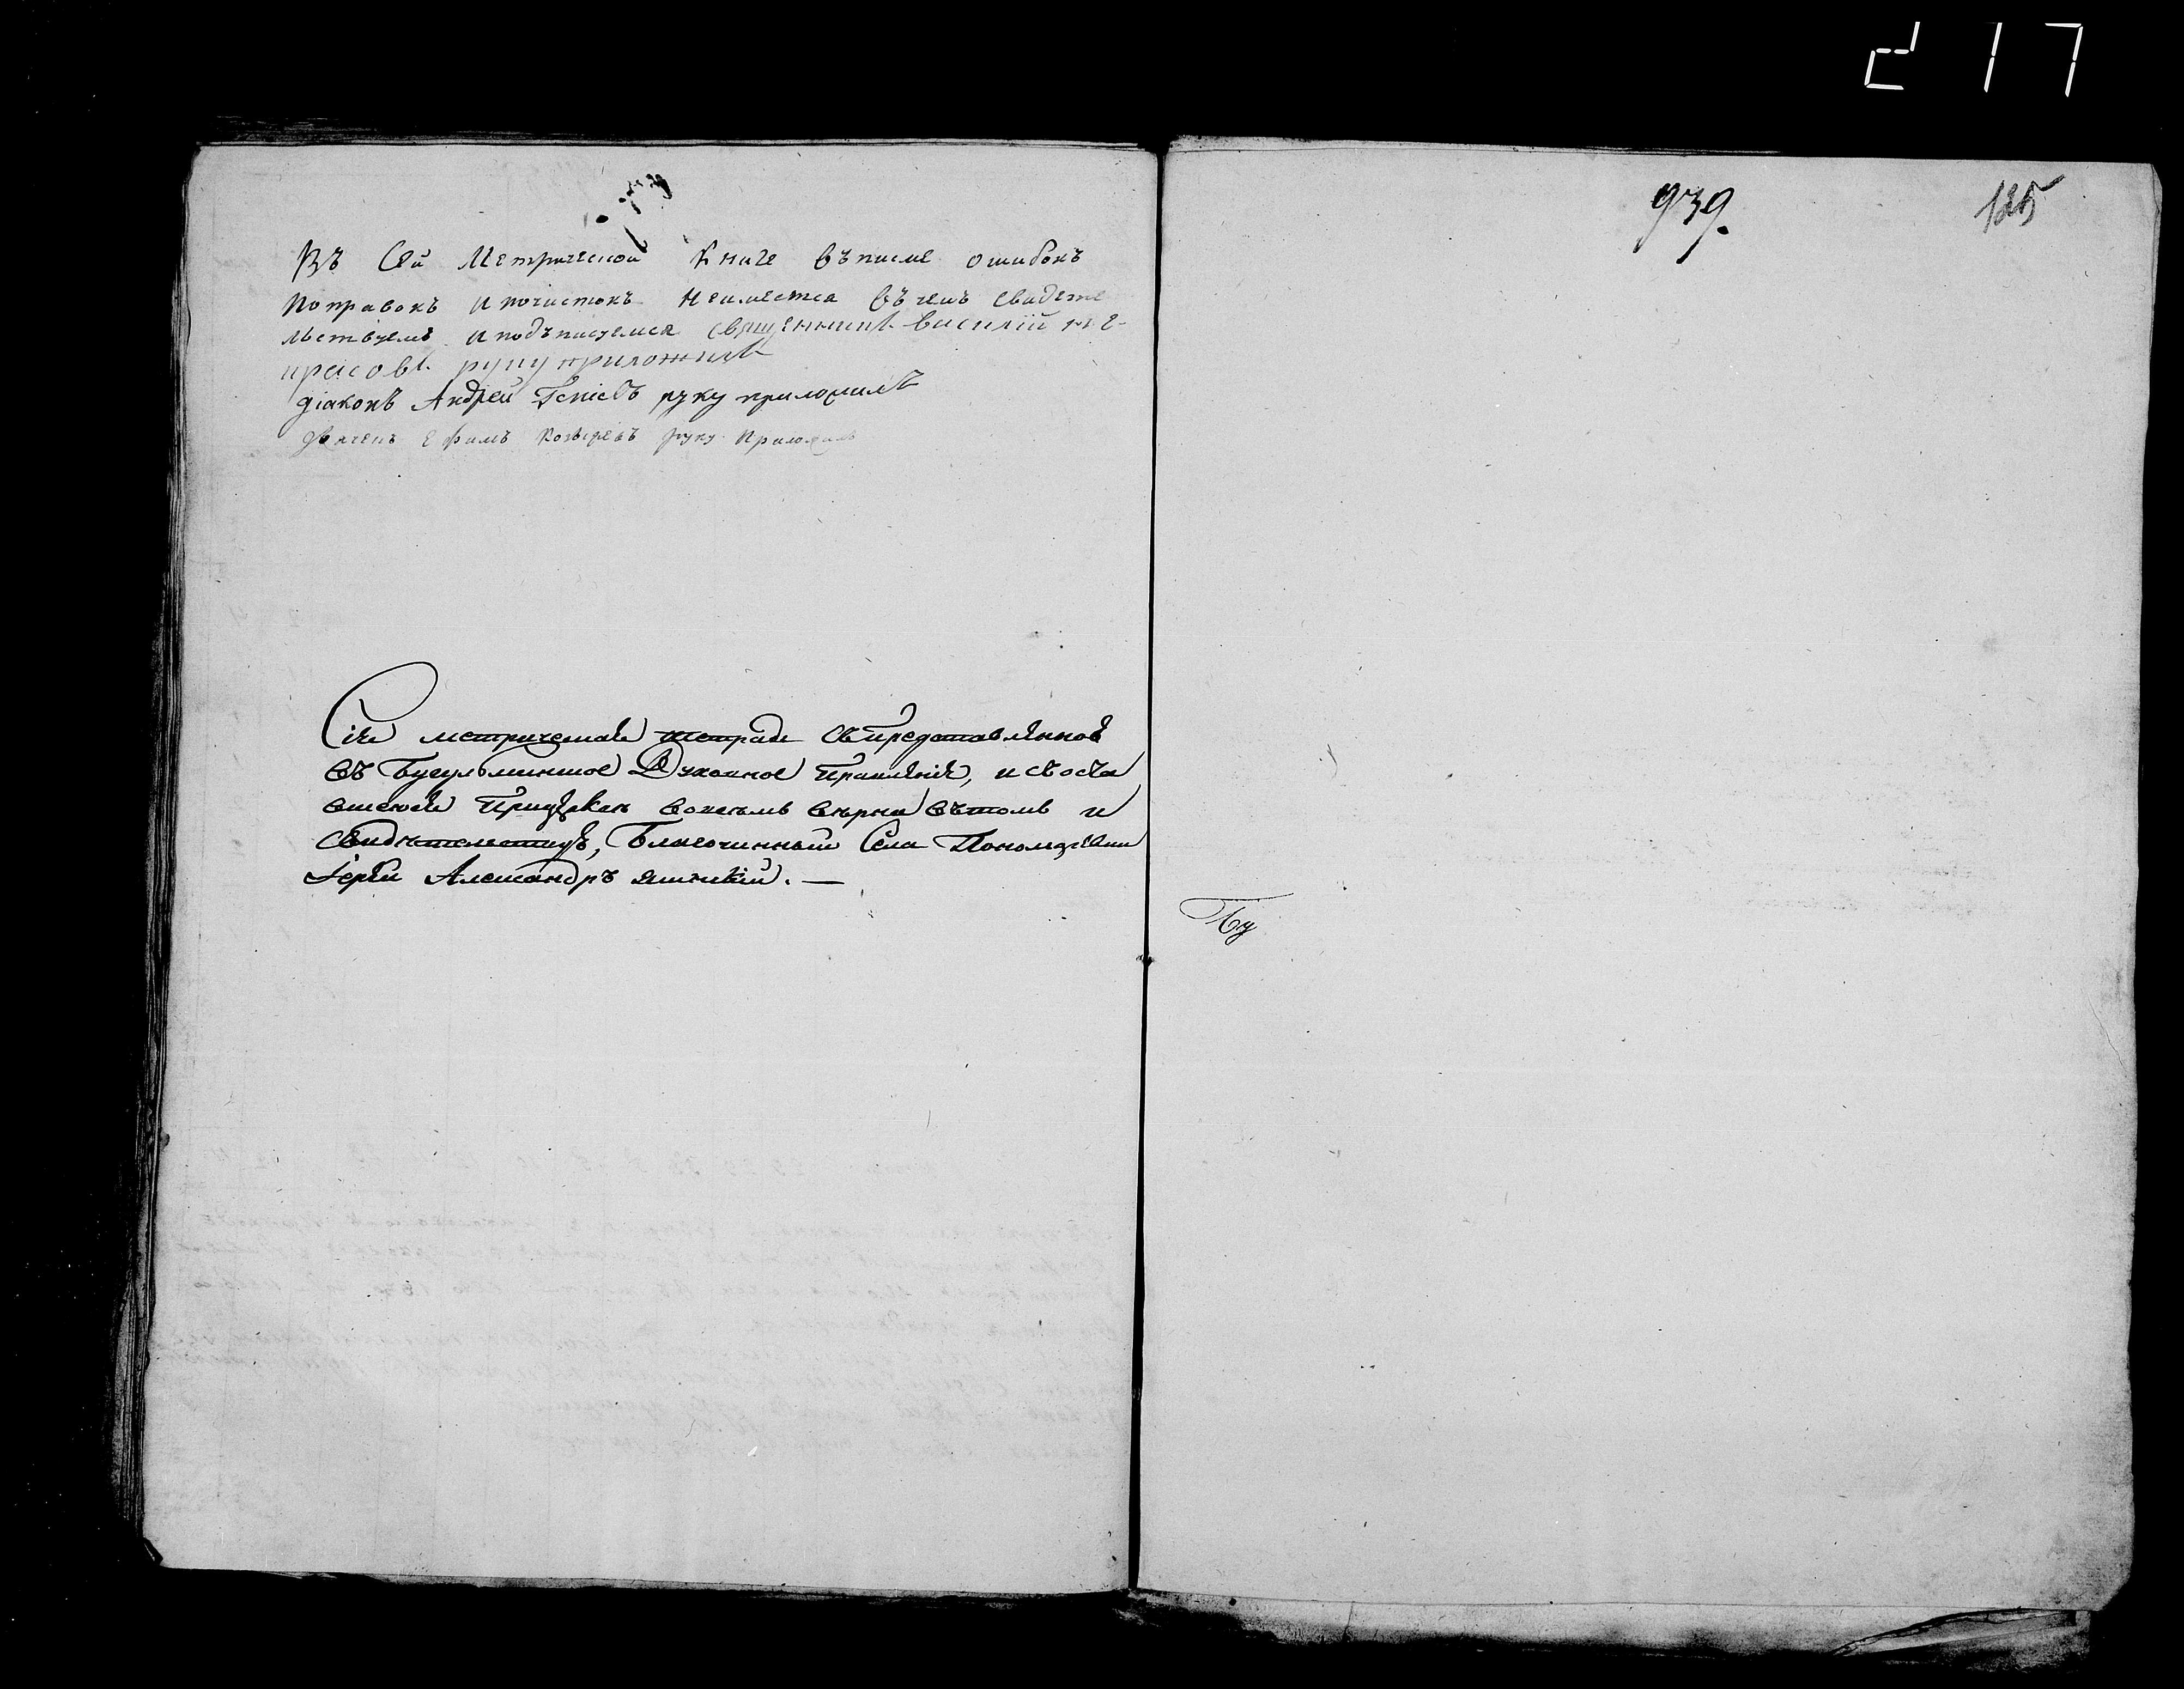 217
939.
125
Въ Сей Метрической Книге въписме ошибокъ
поправокъ и почистокъ неимеется въ чемъ свидете
льствуемъ и подъписуемся священникъ василий не-
красовъ руку приложилъ
діаконъ Андрей руку приложилъ
дьячекъ Ефимъ руку приложилъ
Сія метрическая тетрадь съ представленной
въ Бугульминское Духовное Правленіе, и съ
во всемъ верна въ томъ и
свидетельствую, Благочинный Села Пономаревки
Іерей Александръ
Бу